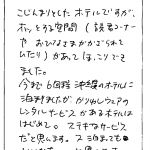 こじんまりとした ホテルですが、
ホッとする空間 ( 読書コーナー
や おひなさまかかざられて
いたり) があって ほっこりでき
ました。
今まで 6回程 沖縄のホテルに
泊りましたが かりゆしウェアの
レンタルサービスが あるホテルは
はじめて。 ステキなサービス
だと思います。 又 泊まっても